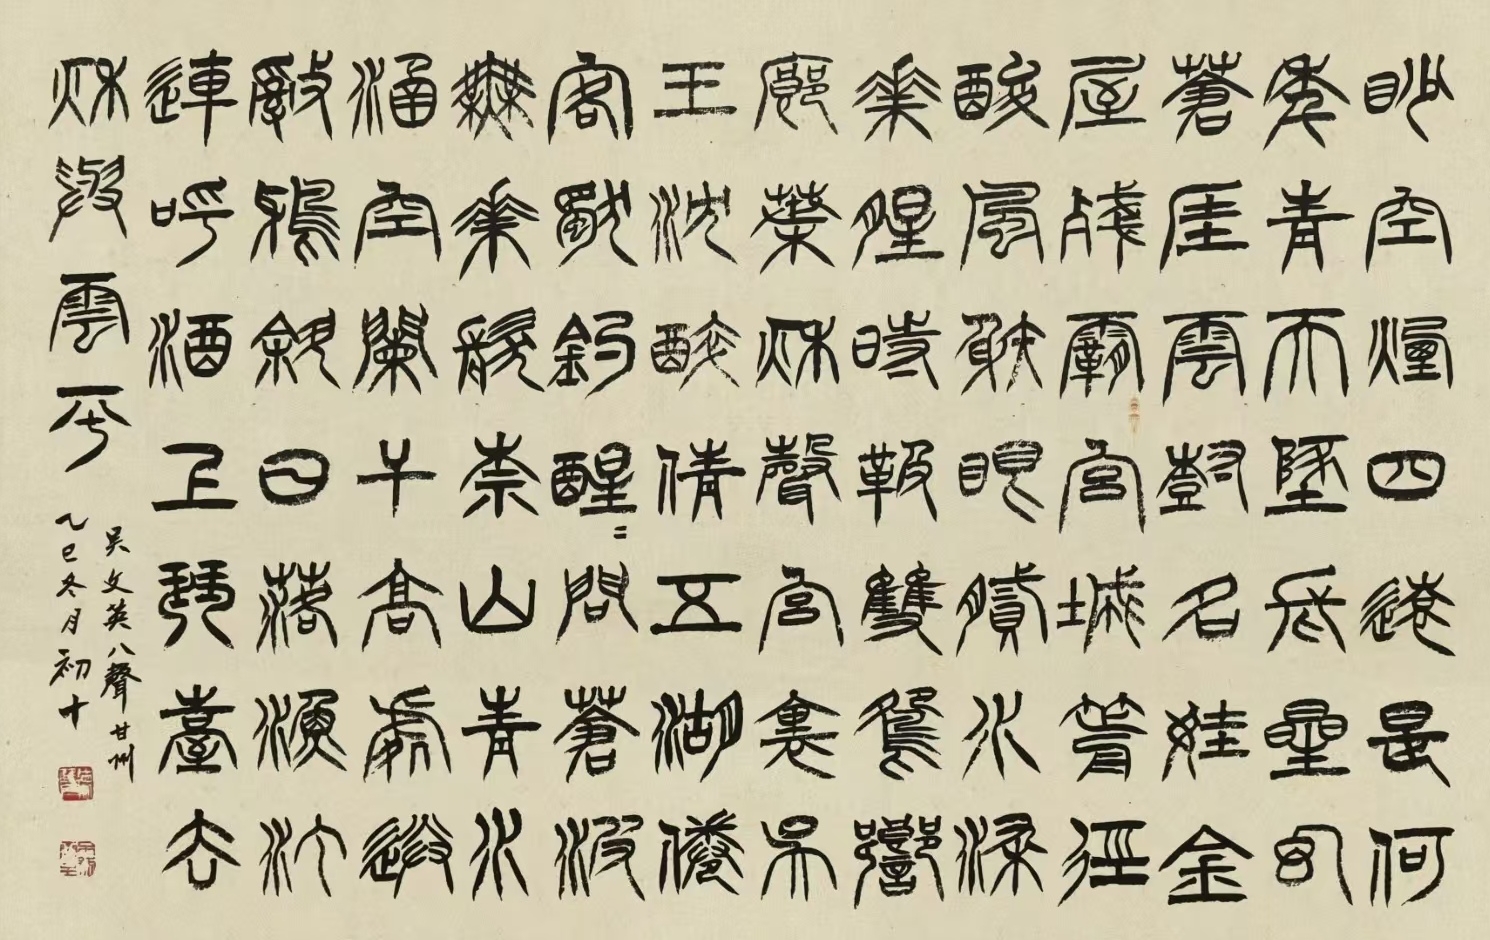 眇空煙四遠是何
年青天墜長星幻
蒼崖雲樹名娃金
屋殘霸宮城箭徑
酸風射眼膩水染
華腥時靸雙鴛響
廊葉秋聲宮裏吳
王沈醉倩五湖倦
客獨釣醒=問蒼波
無華髮奈山青水
涵空闌干高處送
亂鴉斜日落漁汀
連呼酒上琴臺去
秋與雲平
吳文英八聲甘州
乙巳冬月初十